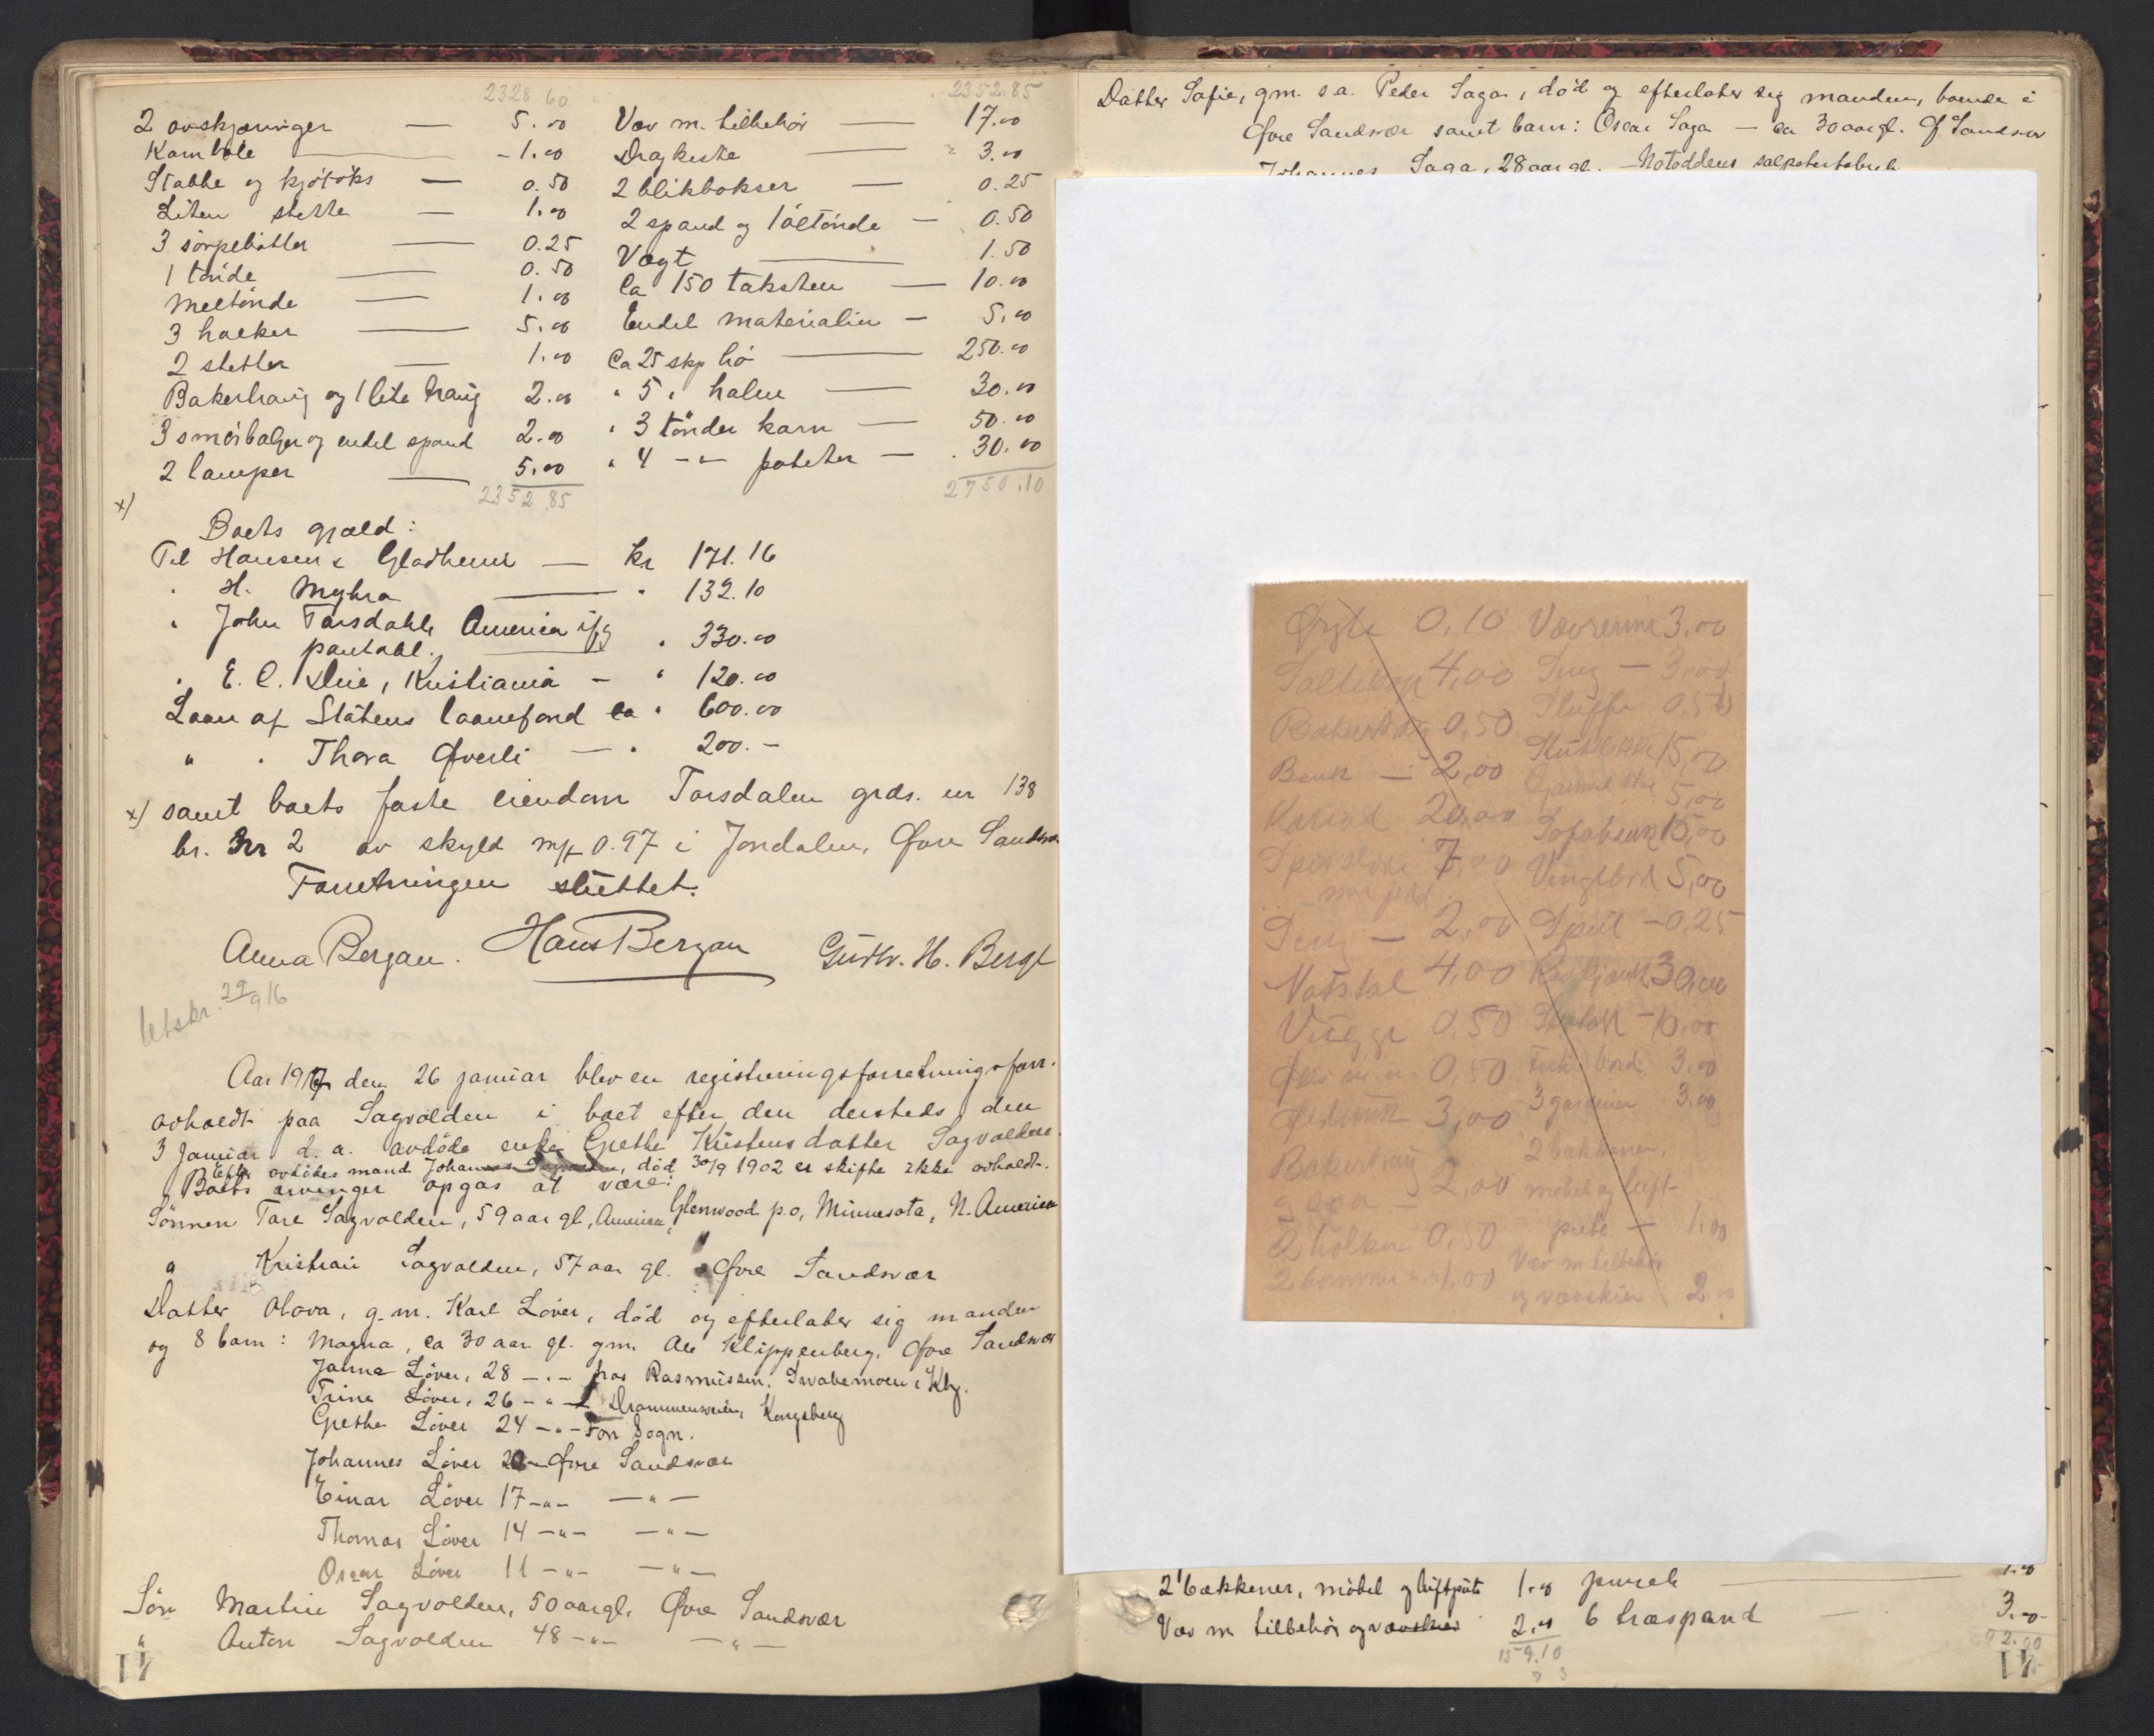 2328 60
2 avskjæringer — 5.00
Kambole — 1.00
Stabbe og kjøtöks — 0.50
Liten stette — 1.00
3 sörpebötter — 0.25
1 tönde — 0.50
Meltönde — 1.00
3 holker — 5.00
2 stetter — 1.00
Bakertraug og 1 lite traug 2.00
3 smörbalger og endel spand 2.00
2 lamper — 5.00
2352.85
2352.85
Væv m. tilbehör — 17.00
Dragkiste — 3.00
2 blikbokser — 0.25
2 spand og 1 öltönde — 0.50
Vægt — 1.50
Ca 150 taksten — 10.00
Endel materialier — 5.00
Ca 25 skp hö — 250.00
" 5 " halm — 30.00
" 3 tönder korn — 50.00
" 4 -"- poteter — 30.00
2750.10
x)
Boets gjæld:
Til Hansen & Gladheim — kr 171.16
" H. Myhra — " 132.10
" John Torsdahl, America ifg
pantobl. " 330.00
" E. C. Düe, Kristiania — " 120.00
Laan af Statens laanefond ca " 600.00
" " Thora Øverli — " 200.-
x) samt boets faste eiendom Torsdalen grds. nr 138
br. nr 2 av skyld mk 0.97 i Jondalen, Øvre Sandsvær
Forretningen sluttet.
Anna Bergan. Hans Bergan Gustv. H. Berge
Utskr. 29/9 16
Aar 1917 den 26 januar blev en registreringsforretning forr.
avholdt paa Sagvolden i boet efter den dersteds den
3 Januar d. a. avdöde enke Grethe Kristensdatter Sagvolden.
Efter avdödes mand Johannes Sagvolden, död 30/9 1902 er skifte ikke avholdt.
Boets arvinger opgas at være:
Sönnen Tore Sagvolden, 59 aar gl, America, Glenwood p.o, Minnesota, N. America
" Kristian Sagvolden, 57 aar gl. Øvre Sandsvær
Datter Olova, g.m. Karl Löver, död og efterlater sig manden
og 8 barn: Magna, ca 30 aar gl. gm. Ole Klippenberg, Øvre Sandsvær
Janna Löver, 28 -"- hos Rasmussen. Svabemoen i Kbg.
Trine Löver, 26 -"- Drammensveien, Kongsberg
Grethe Löver 24 -"- Fon Sogn.
Johannes Löver 20 - Øvre Sandsvær
Einar Löver 17 -"- -"-
Thomas Löver 14 -"- -"-
Oscar Löver 11 -"- -"-
Sön Martin Sagvolden, 50 aar gl. Øvre Sandsvær
" Anton Sagvolden 48 -"- -"-
41
Datter Sofie, gm. s.a. Peder Saga, död og efterlater sig manden, boende i
Øvre Sandsvær samt barn: Oscar Saga — ca 30 aar gl. Ø Sandsvær
Johannes Saga, 28 aar gl. Notoddens salpeterfabrik
Øryte 0,10
4,00
Bakertraug 0,50
Benk — 2,00
Kariol 20,00
7,00
Seng — 2,00
Natstol 4,00
Vugge 0,50
Øks m.m. 0,50
3,00
Bakertraug
2,00
2 holker 0,50
2 bommer 1,00
Vævrenne 3,00
Seng — 3,00
Sluffe 0,50
15,00
5,00
Sofabenk 15,00
Vingebord 5,00
Speil — 0,25
30,00
10,00
bord 3.00
3 gardiner 3.00
2 bækkener,
möbel og luft-
pute — 1.00
Væv m tilbehör
og vævskier 2.00
2 bækkener, möbel og luftpute 1.00
Væv m tilbehör og vævskier 2.00
159.10
1.00
6 træspand — 3.00
92.00
41